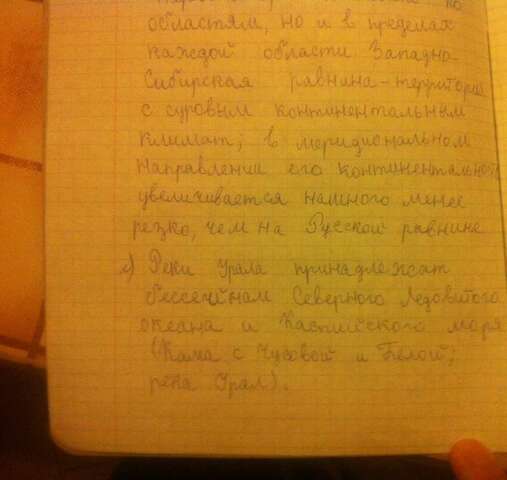 по
областям, но и в пределах
каждой области Западно-
Сибирская равнина - территория
с суровым континентальным
климат; в меридиональном
направлении его континентальность
увеличивается намного менее
резко, чем на Русской равнине
2) Реки Урала принадлежат
бассейнам Северного Ледовитого
океана и Каспийского моря
(Кама с Чусовой и Белой;
река Урал).